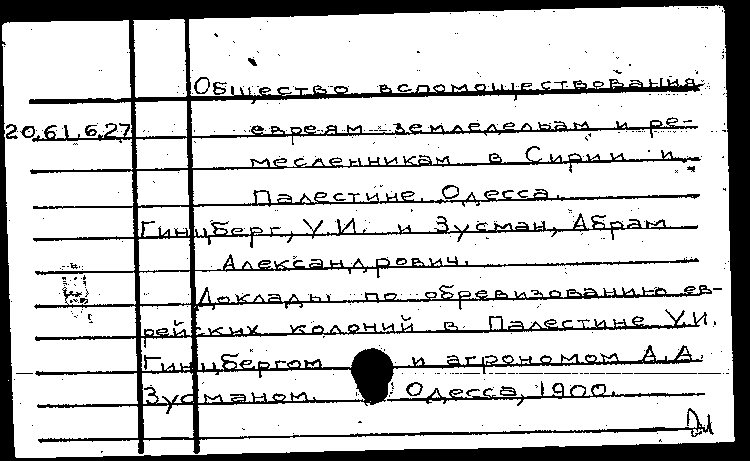 Общество вспомоществования
20.61.6.27 евреям земледельцам и ре-
месленникам в Сирии и
Палестине. Одесса.
Гинцберг, У.И. и Зусман, Абрам
Александрович.
Доклады по обревизованию ев-
рейских колоний в Палестине У.И.
Гинцбергом и агрономом А.А.
Зусманом. Одесса, 1900.